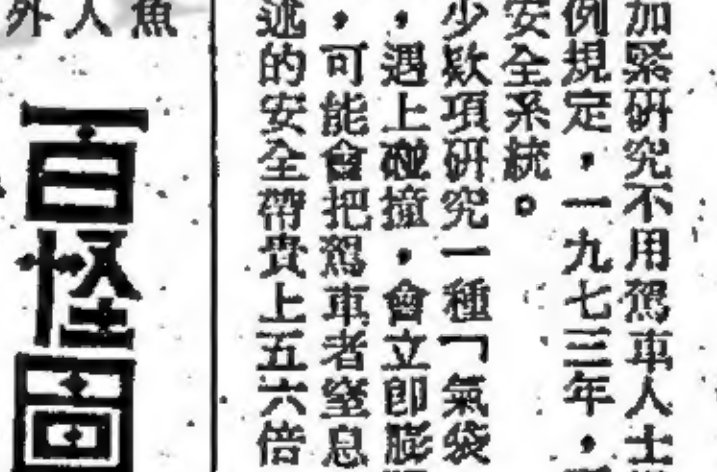 加緊研究不用駕車人士
例規定，一九七三年，
安全系統。
少欵項研究一種「氣袋
，遇上碰撞，會立即膨
，可能會把駕車者窒息
述的安全帶貴上五六倍
魚
人
外
百怪圖